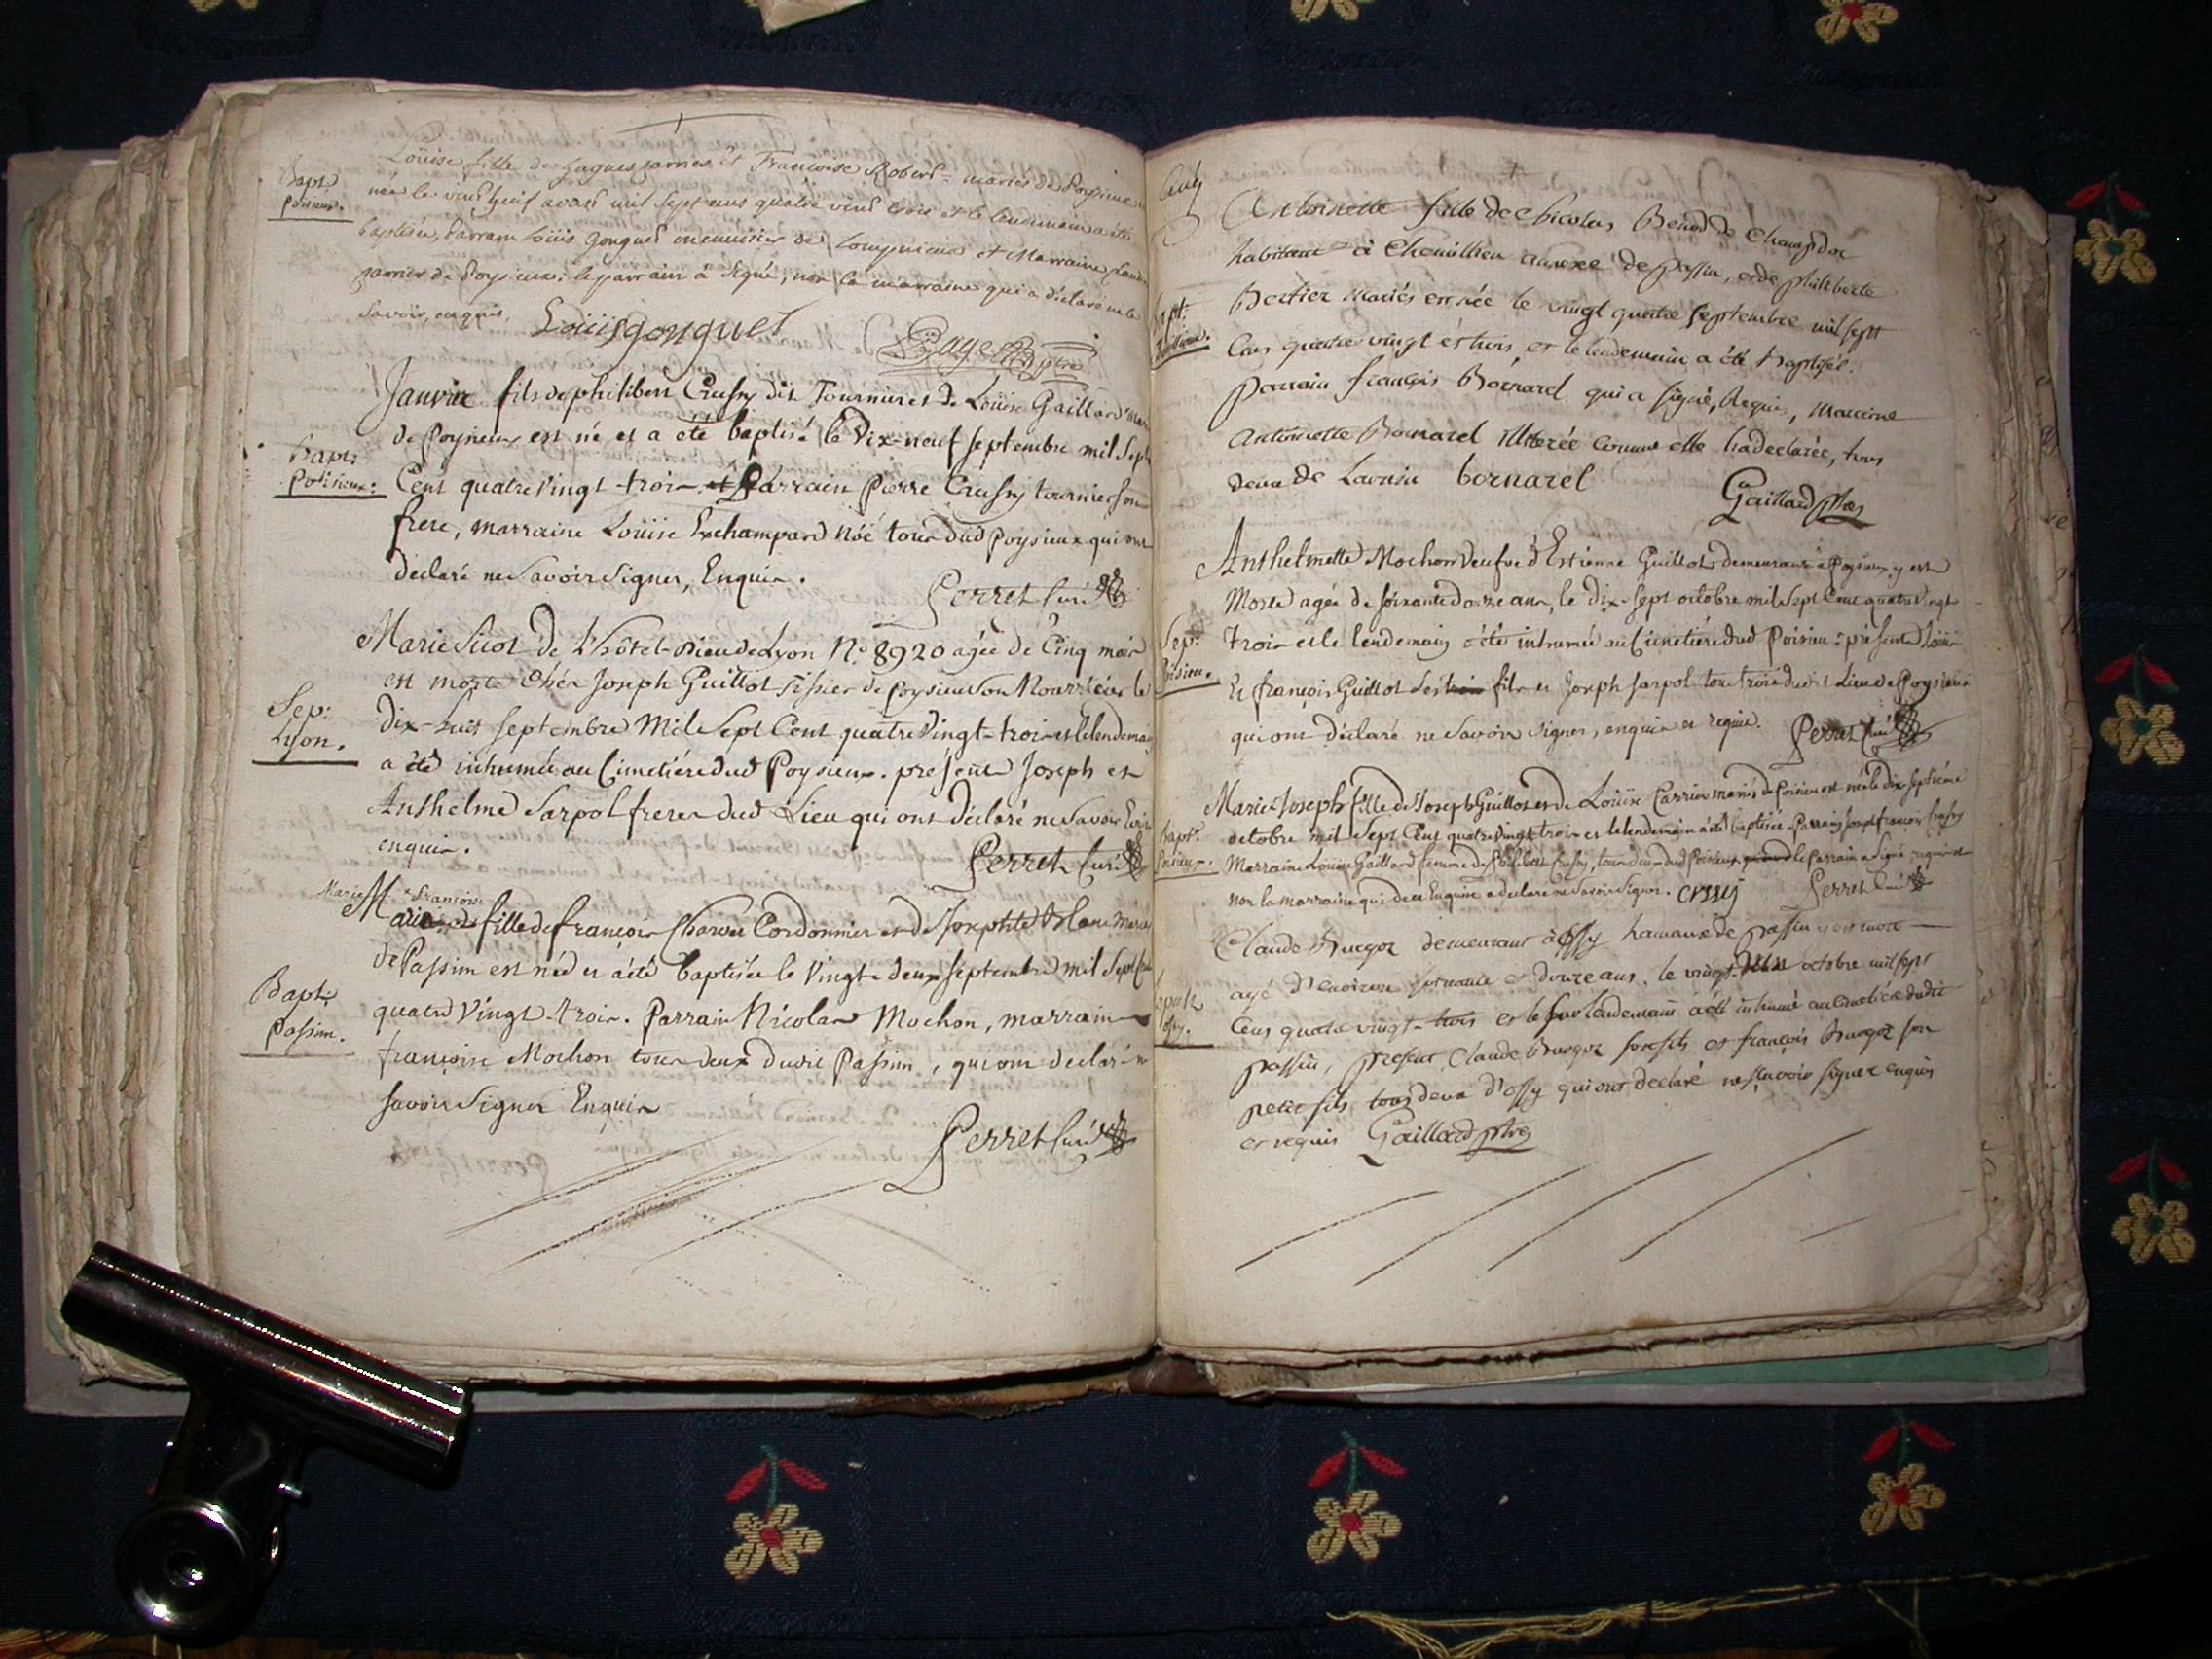 Bapt:
Poisieux.
Loüise fille de Jaques Jarrier et Francoise Robert mariés de Poysieux
née le vint huit avast mil sept cens quatre vint trois et le lendemain a été
baptisée, Parrain Loüis Gonguet menuisier de Lompnieux et Marraine
Jarrier de Poysieux; le parrain a signé, non la marraine qui a déclaré ne le
savoir, enquis. Loüis gonguet
Bapt:
Poisieux:
Janvier fils de philibert Crussy dit Tournier et de Loüise Gaillard
de Poysieux est né et a été baptisé le Dix-neuf septembre mil Sept
Cent quatre Vingt-trois et Parrain Pierre Crussy tournier son
frere, marraine Loüise Exchampard Nôé tous dud Poysieux qui ont
declaré ne Savoir Signer, Enquis.
Perret Curé
Sep:
Lyon.
Marie Sicot de L'hôtel-Dieu de Lyon N.º 8920 agée de Cinq mois
est morte Chés Joseph Guillot tissier de Poysieux son Nourricier le
dix-huit Septembre Mil Sept Cent quatre Vingt-trois et le lendemain
a été inhumée au Cimetiére dud Poysieux. présent Joseph et
Anthelme Sarpol freres dud Lieu qui ont déclaré ne Savoir Ecrire
enquis.
Perret Curé
Bapt:
Passin.
Marie françoise
Marie fille de françois Charvet Cordonnier et de Josephte Blanc Mariés
de Passin est née et a été baptisée le Vingt-deux Septembre mil Sept Cent
quatre Vingt-trois. Parrain Nicolas Mochon, marraine
françoise Mochon tous deux dudit Passin, qui ont declaré ne
Savoir Signer Enquis
Perret Curé
Bapt:
Antoinette fille de Nicolas Benod de Champdor
habitant à Chemillieu annexe de passin, et de philiberte
Bertier mariés est née le vingt quatre septembre mil sept
Cens quatre vingt et trois, et le lendemain a été baptisée.
parrain françois Bornarel qui a signé, Requis, marraine
antoinette Bornarel illiterée comme elle l'a declarée, tous
deux de Lavusin bornarel
Gaillard ptre
Sep:
Poisieu.
Anthelmette Mochon Veufve d'Estienne Guillot demeurante à Poysieux y est
Morte agée de soixante douze ans, le dix-sept octobre mil Sept Cent quatre Vingt
trois et le lendemain a été inhumée au Cimetiére dud Poisieu: présent Loüis
Et françois Guillot Ses fils et Joseph Sarpol tous trois dudit Lieu de Poysieux
qui ont déclaré ne Savoir Signer, enquis et requis. Perret Curé
bapt:
Poisieux.
Marie Joseph fille de Joseph Guillot et de Loüise Carrier mariés de Poisieu est née le dix septiéme
octobre mil Sept Cent quatre Vingt trois et le lendemain a été baptisée. Parrain Joseph françois Crussy
Marraine Loüise Gaillard femme de Philibert Crussy, tous deux dud Poisieux le Parrain a Signé requis et
non la marraine qui de ce Enquise a declaré ne Savoir Signer. crussy Perret Curé
Claude Burgoz demeurant à Ossy hamaux de passin y est mort
agé d'environ soixante et douze ans, le vingt-un octobre mil sept
Cens quatre vingt-trois et le lendemain a été inhumé au Cimetiére dudit
passin, présent, Claude Burgoz son fils et françois Burgoz son
petit fils, tous deux d'ossy qui ont declaré ne sçavoir signer enquis
et requis Gaillard ptre